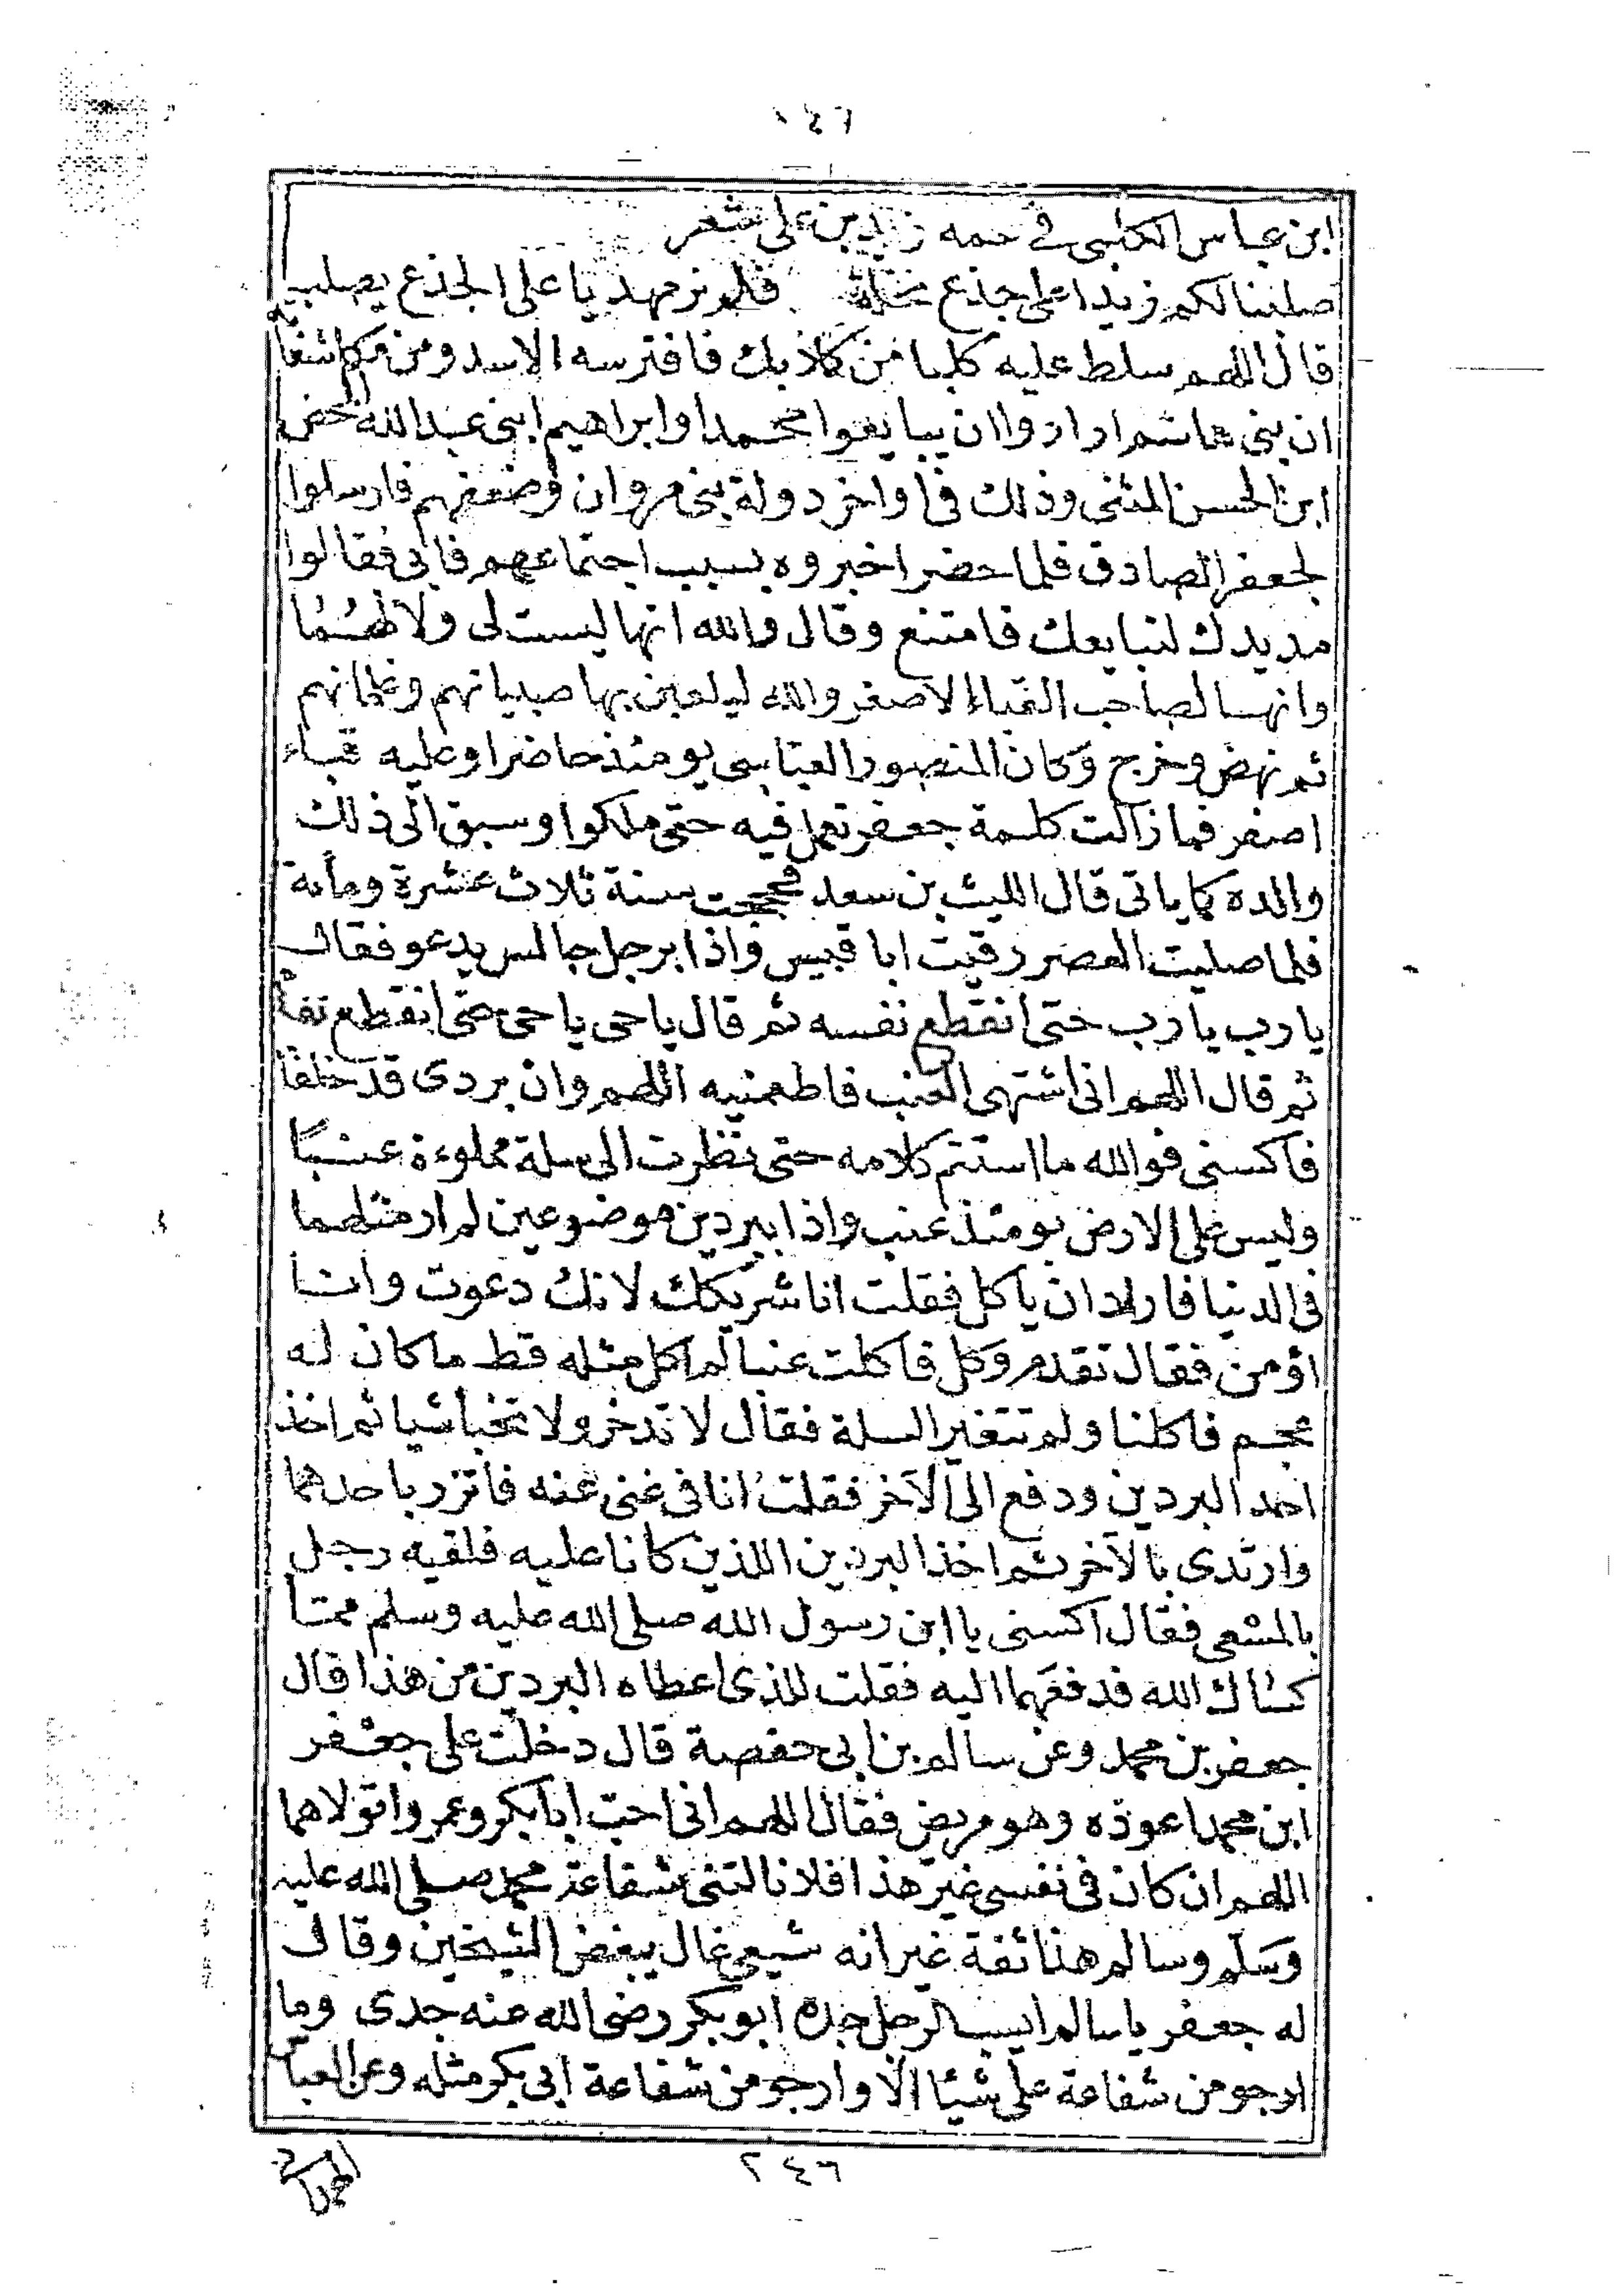 ابن عباس الكلبى فى عمه زيد بن على شعر
صلبنا لكم زيدا على جذع نخلة فلم نر مهديا على الجذع يصلب
قال اللهم سلط عليه كلبا من كلابك فافترسه الاسد ومن مكاشفاته
ان بنى هاشم ارادوا ان يبايعوا محمدا وابراهيم ابنى عبدالله المحض
ابن الحسن المثنى وذلك فى اواخر دولة بنى مروان وضعفهم فارسلوا
لجعفر الصادق فلما حضر اخبروه بسبب اجتماعهم فابى فقالوا
مد يدك لنبايعك فامتنع وقال والله انها ليست لى ولا لهما
وانها لصاحب القباء الاصفر والله ليلعبن بها صبيانهم وغلمانهم
ثم نهض وخرج وكان المنصور العباسى يومئذ حاضرا وعليه قباء
اصفر فما زالت كلمة جعفر تعمل فيه حتى ملكوا وسبق الى ذلك
والده كما ياتى قال الليث بن سعد حججت سنة ثلاث عشرة ومأية
فلما صليت العصر رقيت ابا قبيس واذا برجل جالس يدعو فقال
يا رب يا رب حتى انقطع نفسه ثم قال يا حى يا حى حتى انقطع نفسه
ثم قال اللهم انى اشتهى العنب فاطعمنيه اللهم وان بردى قد خلقا
فاكسنى فوالله ما استتم كلامه حتى نظرت الى سلة مملوءة عنبًا
وليس على الارض يومئذ عنب واذا ببردين موضوعين لم ار مثلهما
فى الدنيا فاراد ان ياكل فقلت انا شريكك لانك دعوت وانا
اؤمن فقال تقدم وكل فاكلت عنبا لم اكل مثله قط ما كان له
عجم فاكلنا ولم تتغير السلة فقال لا تدخر ولا تخبأ شيا ثم اخذ
احد البردين ودفع الى الآخر فقلت انا فى غنى عنه فاتزر باحدهما
وارتدى بالآخر ثم اخذ البردين اللذين كانا عليه فلقيه رجل
بالمسعى فقال اكسنى يا ابن رسول الله صلى الله عليه وسلم مما
كساك الله فدفعهما اليه فقلت للذى اعطاه البردين من هذا قال
جعفر بن محمد وعن سالم بن ابى حفصة قال دخلت على جعفر
ابن محمد اعوده وهو مريض فقال اللهم انى احب ابا بكر وعمر واتولاهما
اللهم ان كان فى نفسى غير هذا فلا نالتنى شفاعة محمد صلى الله عليه
وسلم وسالم هذا ثقة غير انه شيعى غال يبغض الشيخين وقال
له جعفر يا سالم ايسب الرجل جده ابو بكر رضى الله عنه جدى وما
ارجو من شفاعة على شيئا الا وارجو من شفاعة ابى بكر مثله وعن العبا
٢٤٦